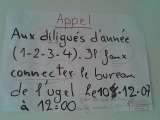 Appel
Aux diligués d'année
(1-2-3-4). Il faux
connecter le bureau
de l'ugel le 10-12-07
à 12:00